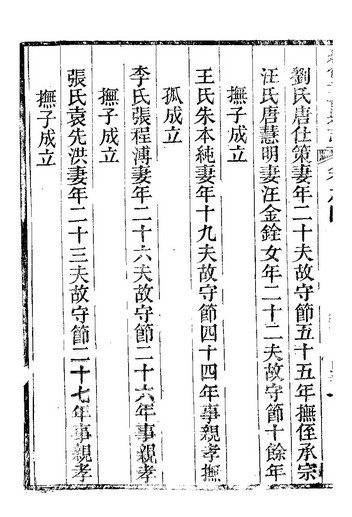 劉氏唐仕策妻年二十夫故守節五十五年撫侄承宗
汪氏唐慧明妻汪金銓女年二十二夫故守節十餘年
撫子成立
王氏朱本純妻年十九夫故守節四十四年事親孝撫
孤成立
李氏張程溥妻年二十六夫故守節二十六年事親孝
撫子成立
張氏袁先洪妻年二十三夫故守節二十七年事親孝
撫子成立